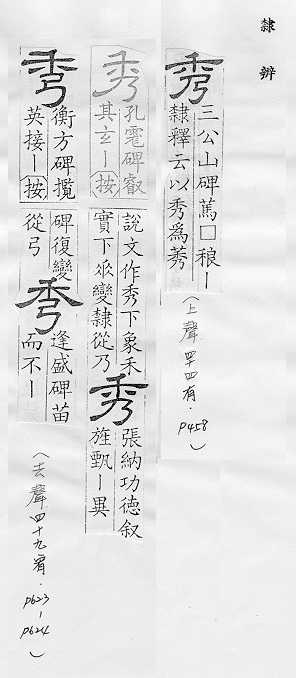 隸辨
秀 三公山碑蕭□稂ー
隸釋云以秀爲莠
（上聲四十四有．P458）
秀 孔霮碑叡
其玄ー（按）
說文作秀下象禾
實下𠂢變隸從乃
秀 張納功德叙
旌甄ー異
秀 衡方碑攬
英接ー（按）
碑復變
從弓
秀 逢盛碑苗
而不ー
（去聲四十九宥．P623-P624）